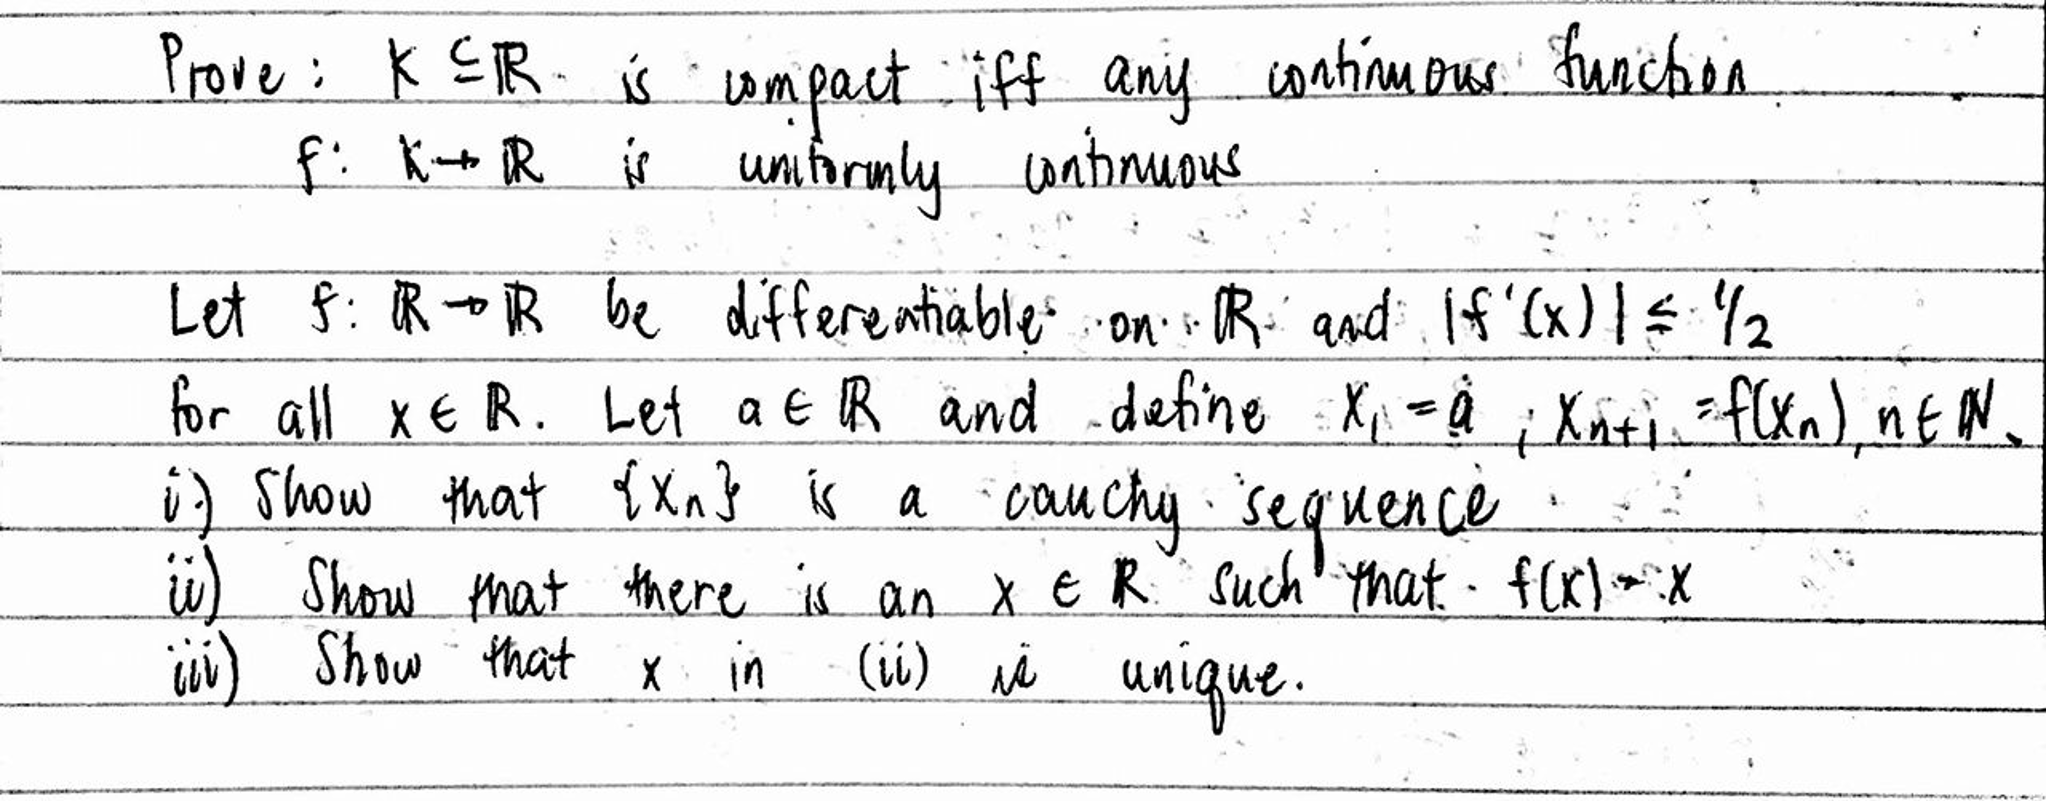 Prove : K ⊆ ℝ is compact iff any continuous function
f : K → ℝ is uniformly continuous
Let f : ℝ → ℝ be differentiable on ℝ and |f'(x)| ≤ 1/2
for all x ∈ ℝ. Let a ∈ ℝ and define x₁ = a , xₙ₊₁ = f(xₙ), n ∈ ℕ.
i.) Show that {xₙ} is a cauchy sequence
ii) Show that there is an x ∈ ℝ such that f(x) = x
iii) Show that x in (ii) is unique.